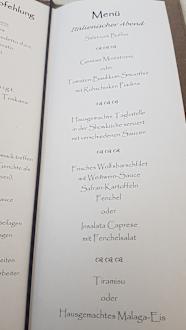 Menü
Italienischer Abend
Salatvom Buffet
Gemüse Minestrone
oder
Tomaten-Basilikum-Smoothie
mit Rohschinken Padana
Hausgemachte Tagliatelle
in der Showküche serviert
mit verschiedenen Saucen
Frisches Wolfsbarschfilet
mit Weißwein-Sauce
Safran-Kartoffeln
Fenchel
oder
Insalata Caprese
mit Fenchelsalat
Tiramisu
oder
Hausgemachtes Malaga-Eis